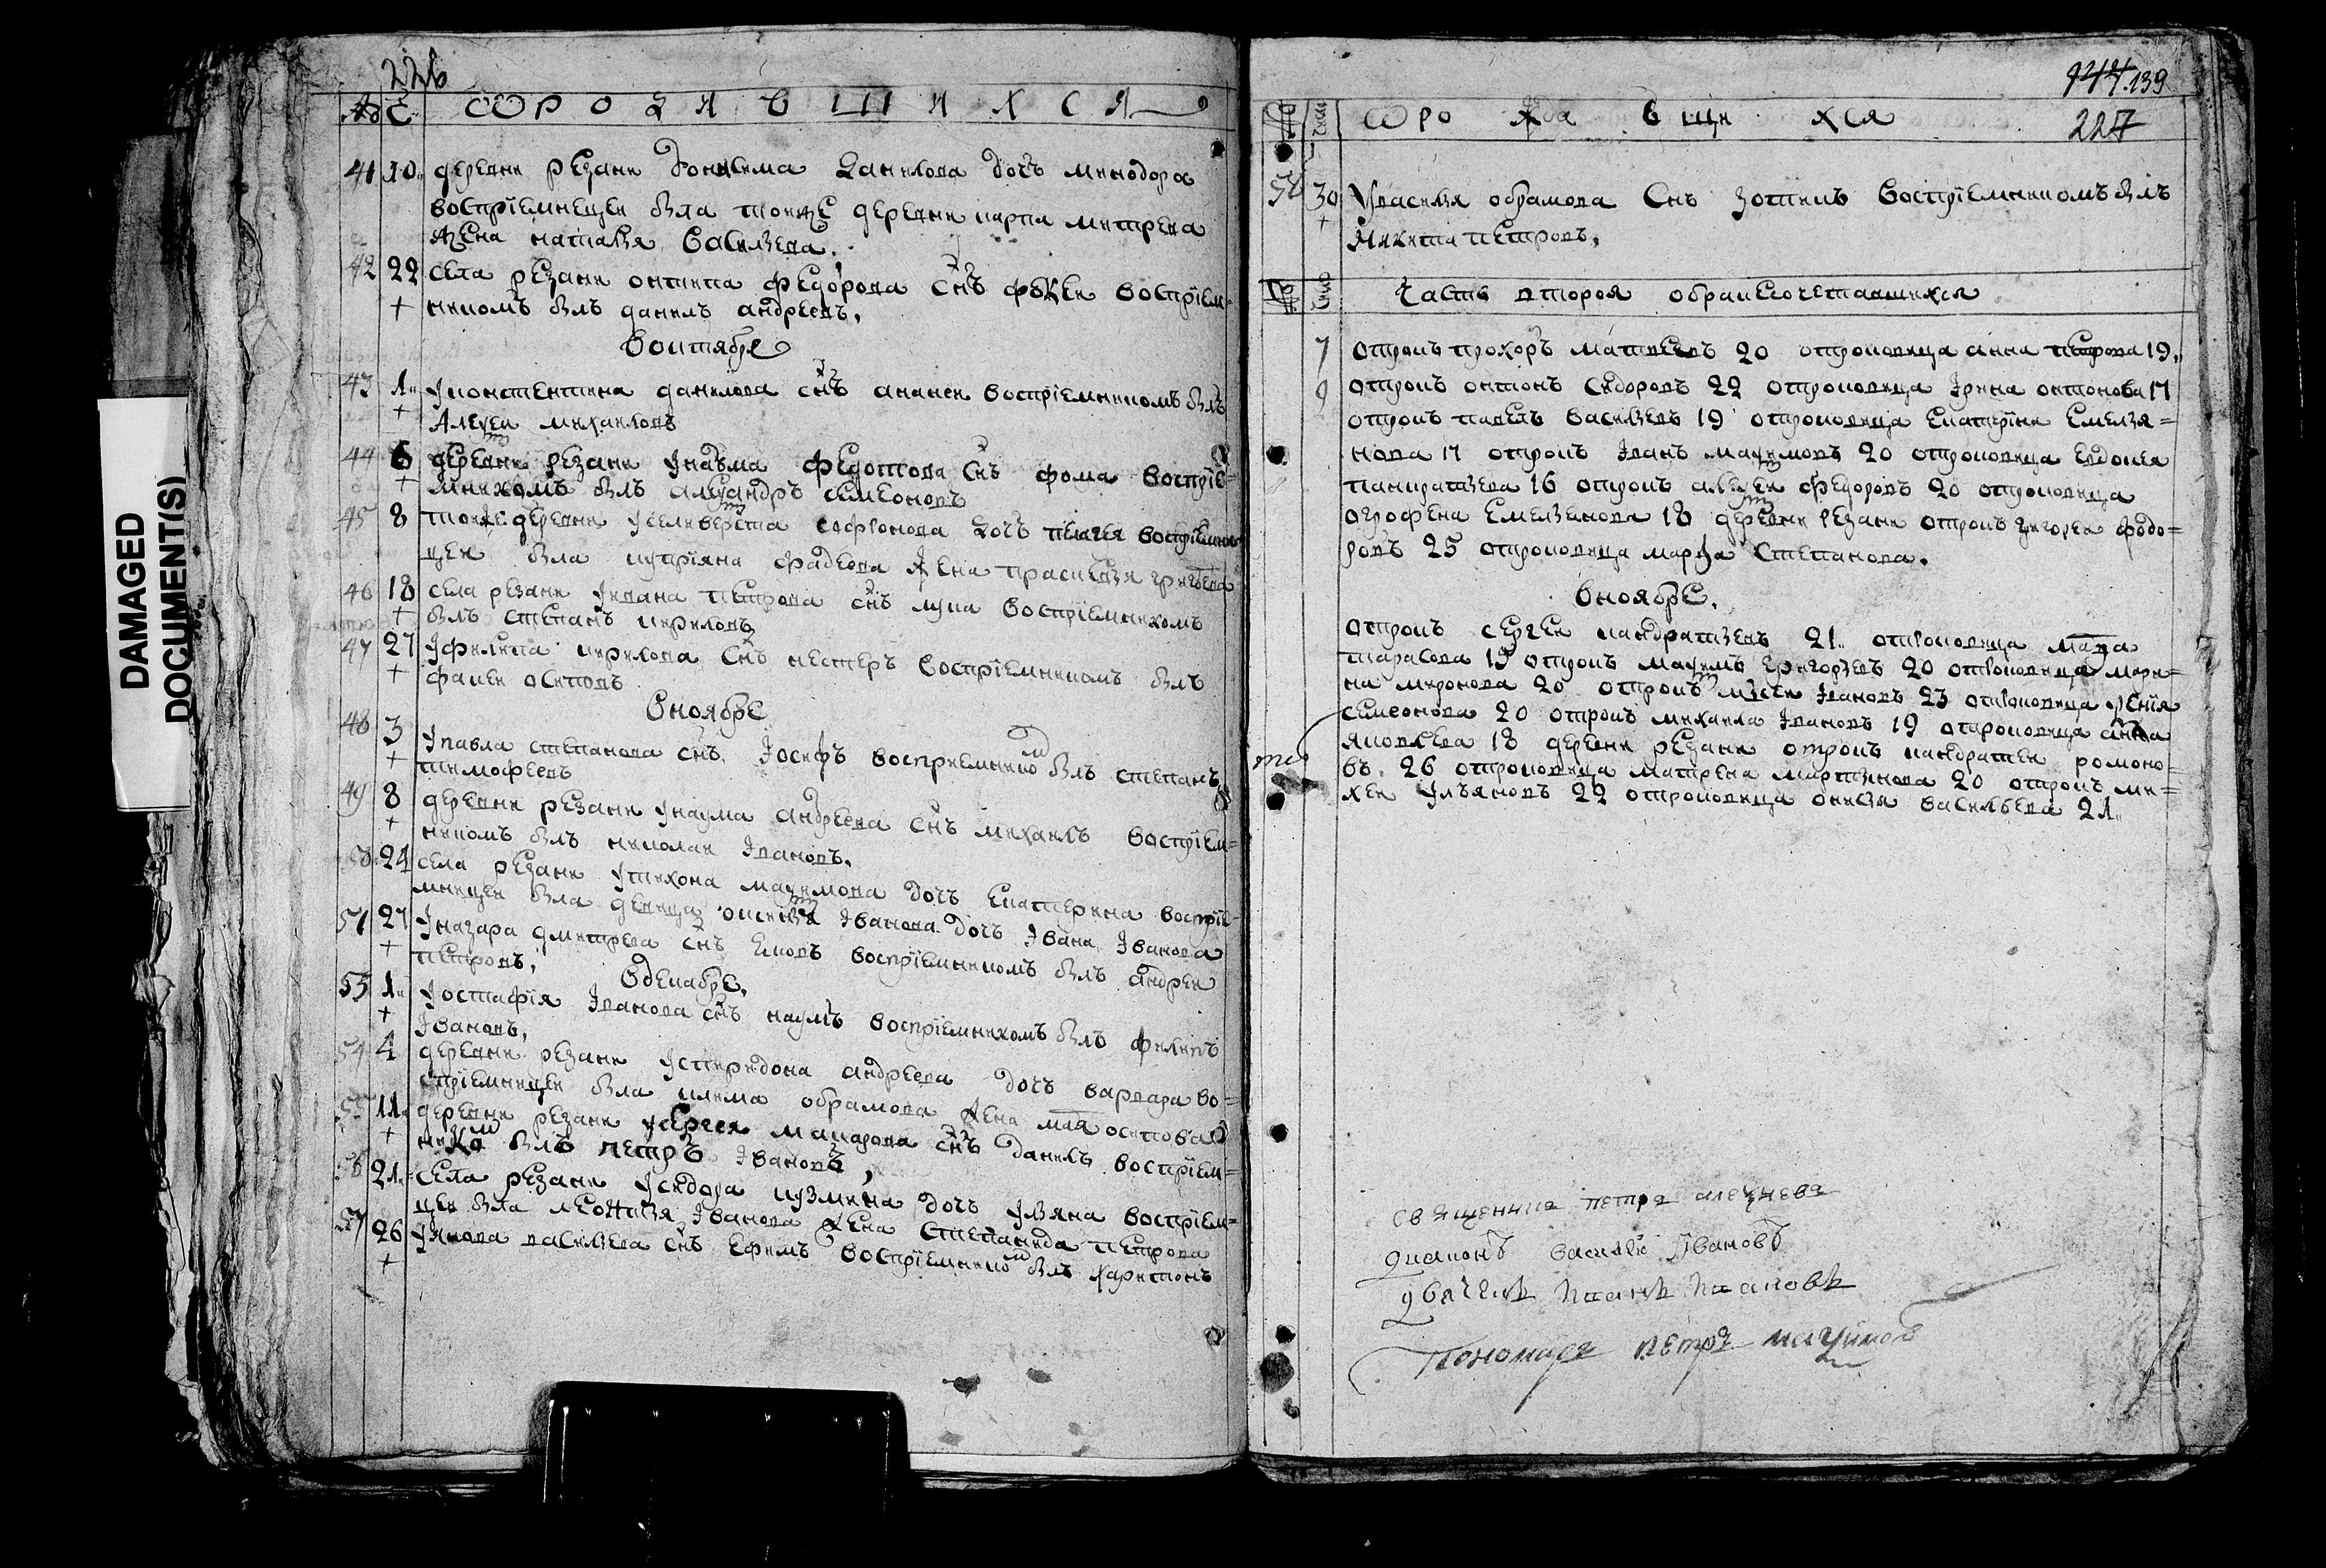 226
№ Ч ѾРОЖДЯВШИХСЯ
41 10 деревни резани донисима данилова дочъ минодора
воспрїемницеи была тоежъ деревни карпа митрева
жена наталья васильева.
42 22 села резани онтипа федорова снъ фокеи воспрїем=
+ никомъ былъ данилъ андреевъ,
воктябре
43 1 уконстентина данилова снъ ананеи воспрїемникомъ былъ
+ Алеѯеи михаиловъ
44 6 деревни резани унаума федотова снъ фома воспрїе=
+ мникомъ былъ алеѯандръ симеоновъ
45 8 тоеже деревни уселиверста софонова дочъ пелагея воспрїемни
цеи была куприяна фадеева жена прасковья григоева
46 18 села резани уивана петрова снъ лука воспрїемникомъ
+ былъ степанъ кириловъ
47 27 уфилипа кирилова снъ нестеръ воспрїемникомъ былъ
+ факеи осиповъ
вноябре
48 3 упавла степанова снъ Іосифъ восприемнико былъ степанъ
+ тимофеевъ
49 8 деревни резани унаума андреева снъ михаилъ воспрїем=
+ никомъ былъ николаи Івановъ,
50 24 села резани утихона маѯимова дочъ Екатерина воспрїе=
мницеи была девица Іванова дочъ Івана Іванова
51 27 уназара дмитрева снъ воспрїемникомъ былъ андреи
+ петровъ,
вдекабре,
53 1 уостафїя Іванова снъ наумъ воспрїемникомъ былъ филипъ
+ Івановъ,
54 4 деревни резани успиридона андреева дочъ варвара во=
спрїемницеи была клима обрамова жена мая осипова
55 11 деревни резани усергея макарова снъ данилъ воспрїем=
+ нико былъ петръ Івановъ,
56 21 села резани усидора кузмина дочъ ульяна воспрїем=
цеи была леонтья Іванова жена степанида петрова
57 26 уякова васильева снъ Ефимъ воспрїемнико былъ харитонъ
+
144. 139
№ число Ѿрождавшихся 227
58 30 уваселья обрамова снъ зотикъ воспрїемникомъ былъ
+ Никита петровъ,
№ число Часть вторая обракесочетавшихся
7 отрокъ прохоръ матвеевъ 20 отроковица анна петрова 19,
9 отрокъ онтонъ Сидоровъ 22 отроковица Ірина онтонова 17
отрокъ павелъ васильевъ 19 отроковица Екатрїна Емелья=
нова 17 отрокъ Іванъ маѯимовъ 20 отроковица Евдокея
панкратьева 16 отрокъ алеѯеи федоровъ 20 отроковица
огрофена Емельянова 18 деревни резани отрокъ григореи федо=
ровъ 25 отроковица марфа Степанова.
вноябре,
отрокъ сергеи кандратьевъ 21 отроковица мара
тарасова 19 отрокъ маѯимъ григорьевъ 20 отроковица мари=
на миронова 20 отрокъ Івановъ 23 отроковица
симеонова 20 отрокъ михаила Івановъ 19 отроковица анна
яковлева 18 деревни резани отрокъ кандратеи ромоно=
въ 26 отроковица матрена мартинова 20 отрокъ ми=
хеи ульяновъ 22 отроковица васильева 21
священикъ петръ алеѯиевъ
диаконъ василеи Ивановъ
дьячекъ Иванъ Ивановъ
Пономарь петръ маѯимов
DAMAGED
DOCUMENT(S)